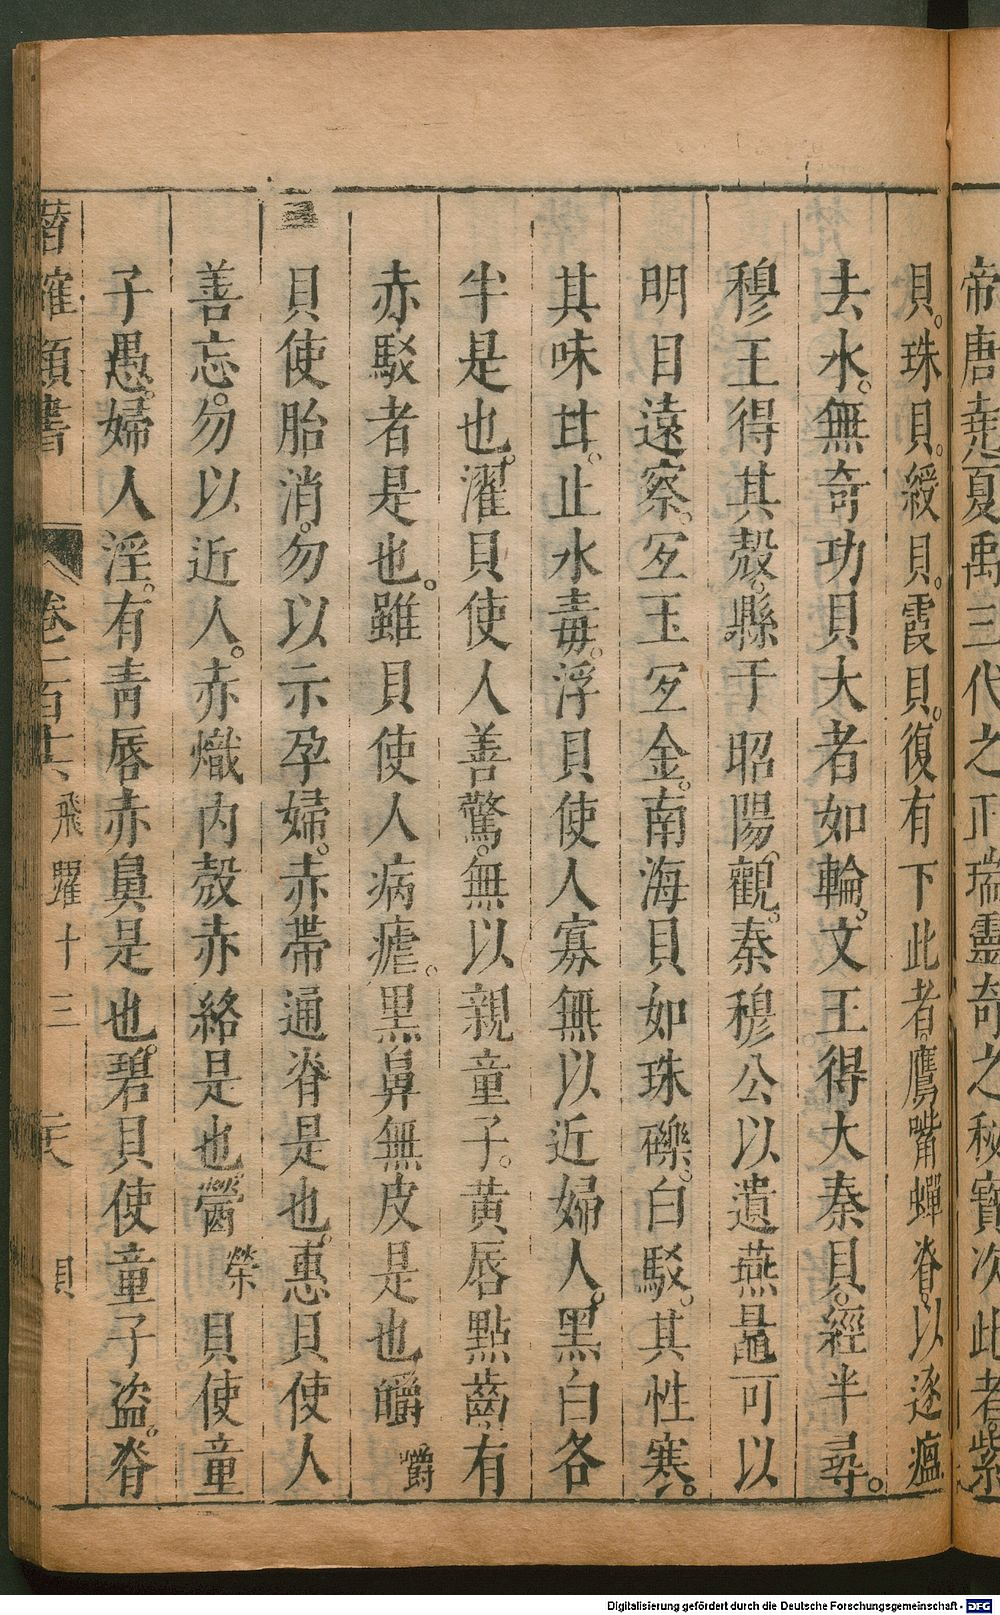 帝唐堯夏禹三代之正瑞靈奇之秘寳次此者紫
貝。珠貝。綬貝。霞貝。復有下此者。鷹嘴蟬脊。以逐瘟
去水。無奇功貝大者如輪。文王得大秦貝。經半尋。
穆王得其殼。縣于昭陽。觀。秦穆公以遺燕鼂可以
明目遠察。宐玉宐金。南海貝如珠礫。白駁。其性寒。
其味甘。止水毒。浮貝使人寡無以近婦人。黑白各
半是也。濯貝使人善驚。無以親童子。黃唇點齒有
赤駁者是也。雖貝使人病瘧。黑鼻無皮是也皭爵
貝使胎消。勿以示孕婦。赤帶通脊是也。惠貝使人
善忘。勿以近人。赤熾内殼赤絡是也醟榮貝使童
子愚。婦人淫。有青唇赤鼻是也。碧貝使童子盗。脊
潛確類書 卷一百十六 飛躍十三 貝
Digitalisierung gefördert durch die Deutsche Forschungsgemeinschaft - DFG